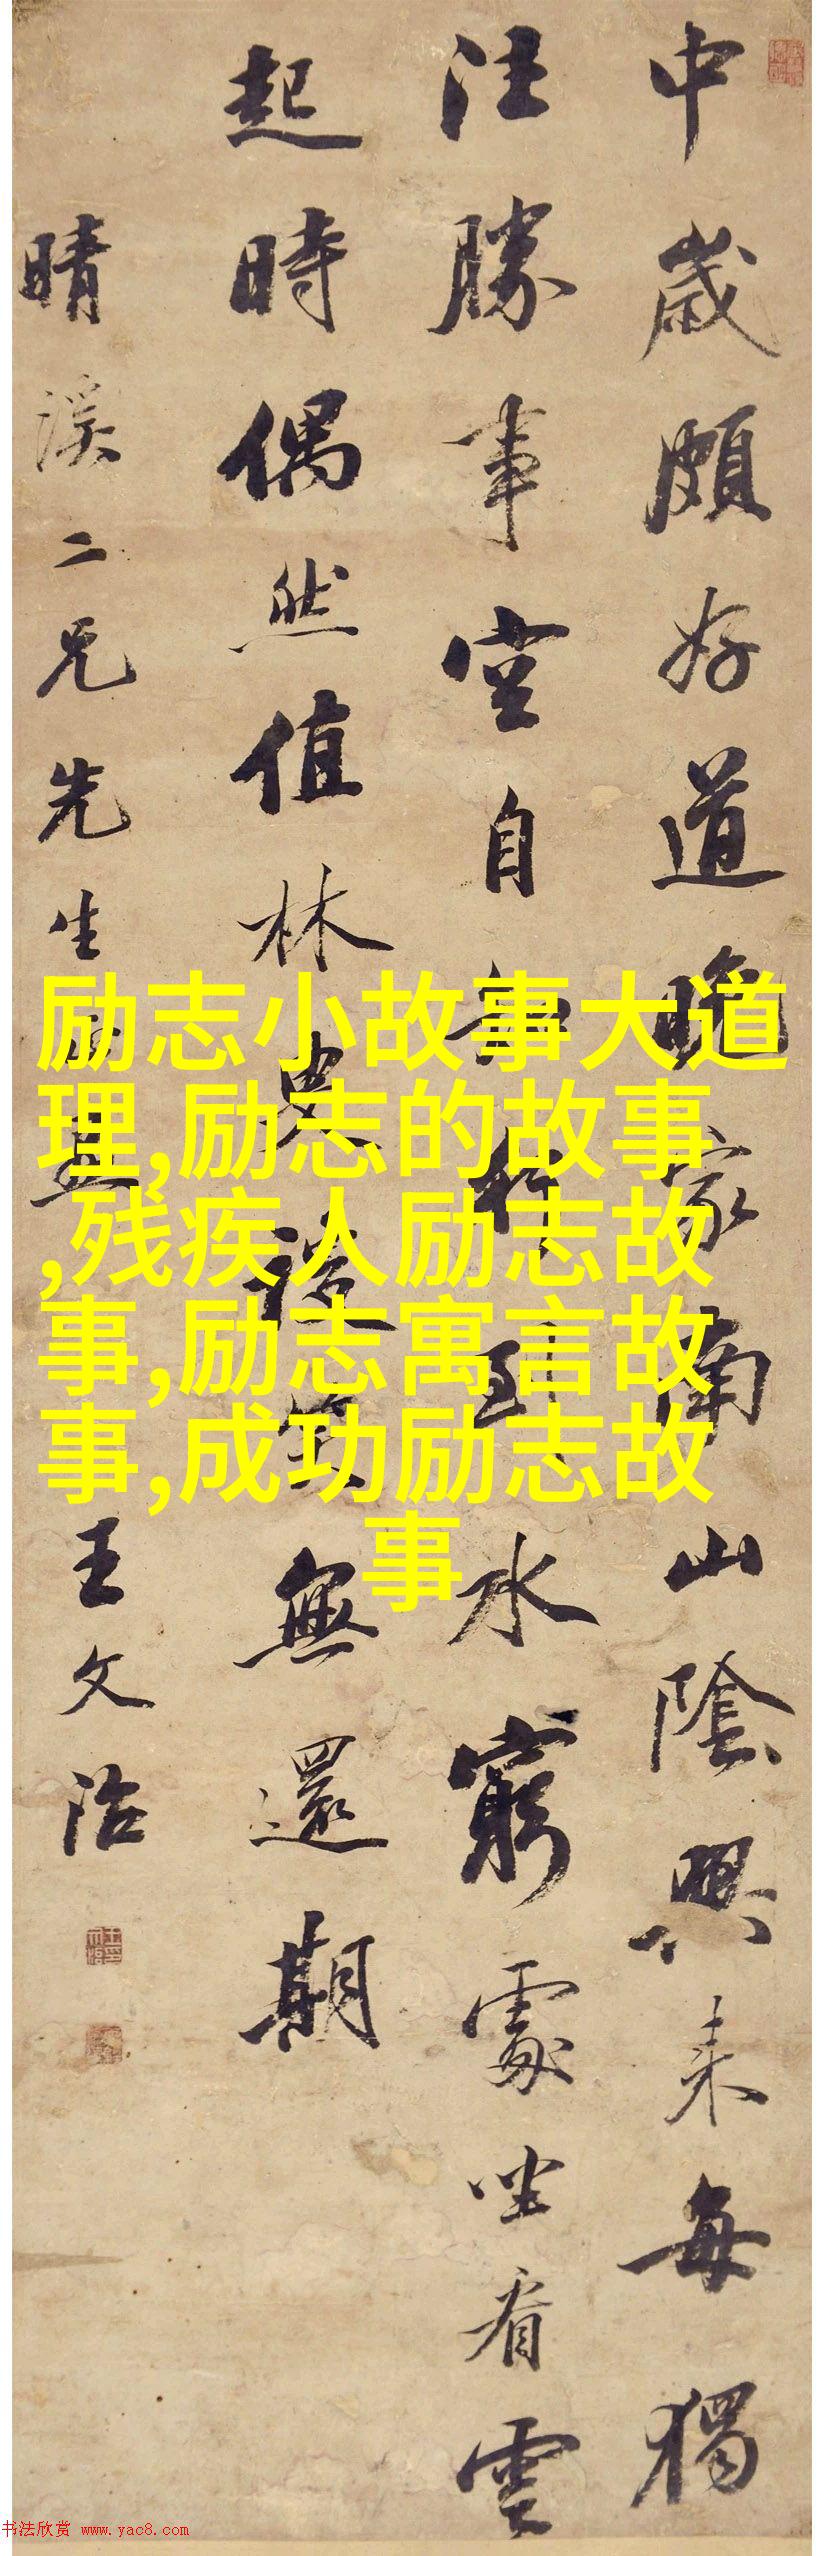 中歲頗好道晚家南山陰興来每獨
往勝事空自知行到水窮處坐看雲
起時偶然值林叟談笑無還期
晴溪二兄先生
王文治
励志小故事大道
理,励志的故事
,残疾人励志故
事,励志寓言故
事,成功励志故
事
书法欣赏 www.yac8.com